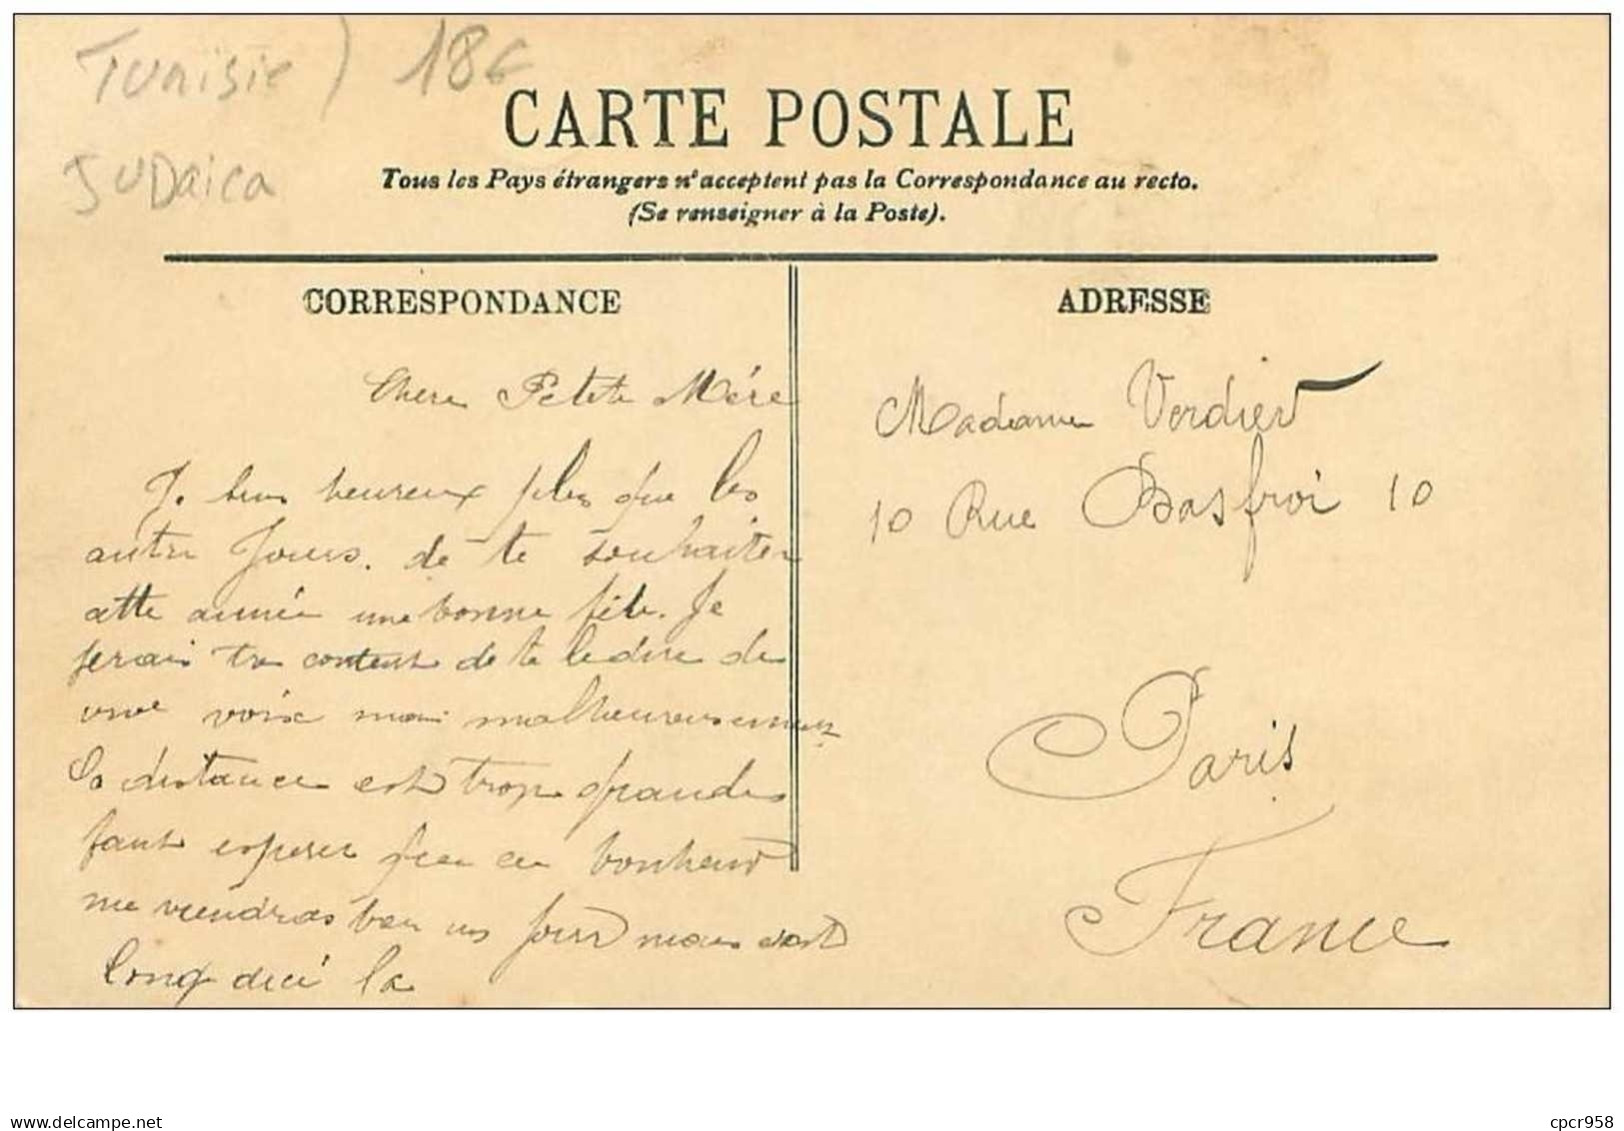 Tunisie) 18€
JUDaica
CARTE POSTALE
Tous les Pays étrangers n'acceptent pas la Correspondance au recto.
(Se renseigner à la Poste).
CORRESPONDANCE
Chere Petite Mére
Je suis heureux plus que les
autre Jours. de te souhaiter
cette année une bonne fête. Je
serais tres content de te le dire de
vive voix mais malheureusement
la distance est trop grande
faut esperer que ce bonheur
me viendras bien un jour mais c'est
long dici la
ADRESSE
Madame Verdier
10 Rue Basfroi 10
Paris
France
delcampe.net
cpcr958